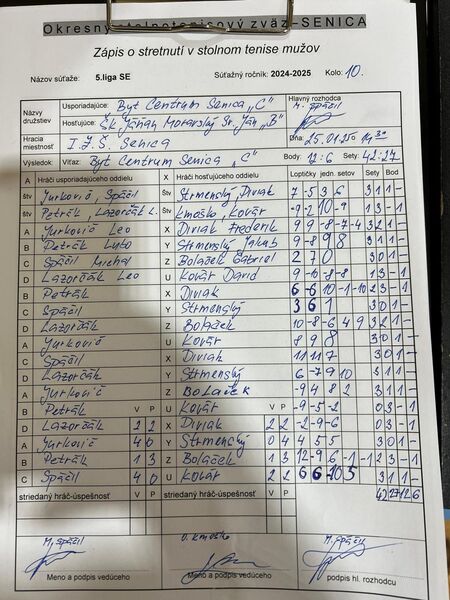 Okresný stolnotenisový zväz-SENICA
Zápis o stretnutí v stolnom tenise mužov
Názov súťaže: 5.liga SE Súťažný ročník: 2024-2025 Kolo: 10.
Názvy družstiev Usporiadajúce: Byt Centrum Senica „C" Hlavný rozhodca M. Spáčil
Hosťujúce: ŠK Moravský Sv. Ján „B"
Hracia miestnosť I.Z.Š. Senica Dňa: 25.01.25 14 30
Výsledok: Víťaz: Byt Centrum Senica „C" Body: 12:6 Sety: 42:27
A Hráči usporiadajúceho družstva X Hráči hosťujúceho družstva Loptičky jedn. setov Sety Bod
Štv Jurkovič, Spáčil Štv Strmenský, Diviak 7 -5 3 6 3 1 1 -
Štv Petrák, Lazorčák L. Štv Kmoško, Kovár -9 -2 10 -9 1 3 - 1
A Jurkovič Leo X Diviak Frederik 9 9 -8 -7 -4
B Petrák Ľubo Y Strmenský Jakub 9 -8 9 8 3 1 1 -
C Spáčil Michal Z Bolaček Gabriel 2 7 0 3 0 1 -
D Lazorčák Leo U Kovár David 1 3 - 1
B Petrák X Diviak 6 -6 10 -1 -10 2 3 - 1
C Spáčil Y Strmenský 3 6 1 3 0 1 -
D Lazorčák Z Bolaček 10 -8 -6 4 9 3 2 1 -
A Jurkovič U Kovár 8 9 8 3 0 1 -
C Spáčil X Diviak 11 11 7 3 0 1 -
D Lazorčák Y Strmenský 6 -7 9 10 3 1 1 -
A Jurkovič Z Bolaček -9 4 8 2 3 1 1 -
B Petrák V P U Kovár V P -9 -5 -2 0 3 - 1
D Lazorčák 2 2 X Diviak 2 2 -2 -9 -6 0 3 - 1
A Jurkovič 4 0 Y Strmenský 0 4 4 5 5 3 0 1 -
B Petrák 1 3 Z Bolaček 1 3 12 -9 6 -1 -12 2 3 - 1
C Spáčil 4 0 U Kovár 2 2 6 6 -10 5 3 1 1 -
striedaný hráč-úspešnosť V P striedaný hráč-úspešnosť V P 42 27 12 6
M. Spáčil D. Kmoško M. Spáčil
Meno a podpis vedúceho Meno a podpis vedúceho podpis hl. rozhodcu